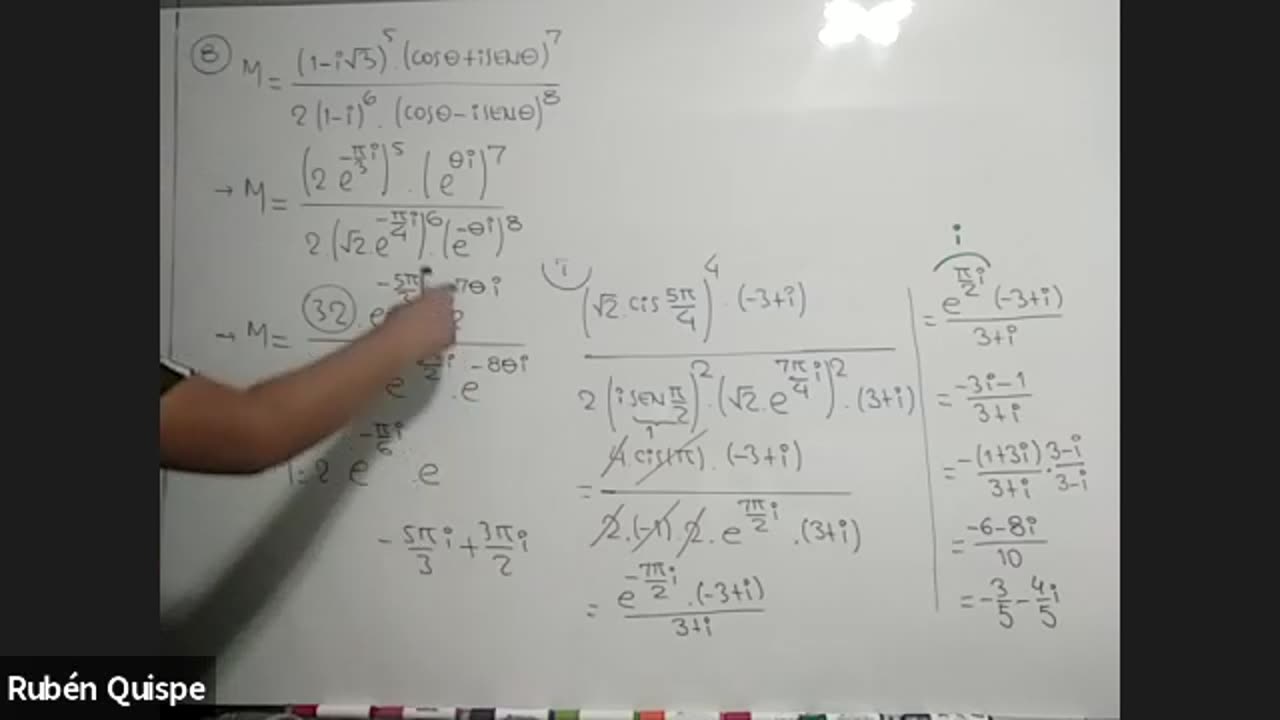 8 M = (1-i√3)^5 . (cosθ+isenθ)^7 / 2(1-i)^6 . (cosθ-isenθ)^8
→ M = (2 e^{-π/3 i})^5 . (e^{θi})^7 / 2.(√2.e^{-π/4 i})^6 . (e^{-θi})^8
→ M = 32 . e^{-5π/3} 7θi / e^{π/2 i} . e^{-8θi}
2 e^{-π/6 i} . e
-5π/3 i + 3π/2 i
7 (√2.cis 5π/4)^4 . (-3+i) / 2(isen π/2)^2 . (√2.e^{7π/4 i})^2 . (3+i)
1
= 4.cis(π).(-3+i) / 2.(-1).2.e^{7π/2 i} . (3+i)
= e^{-7π/2 i} . (-3+i) / 3+i
i
= e^{π/2 i} (-3+i) / 3+i
= -3i-1 / 3+i
= -(1+3i) / 3+i . 3-i / 3-i
= -6-8i / 10
= -3/5 - 4/5 i
Rubén Quispe